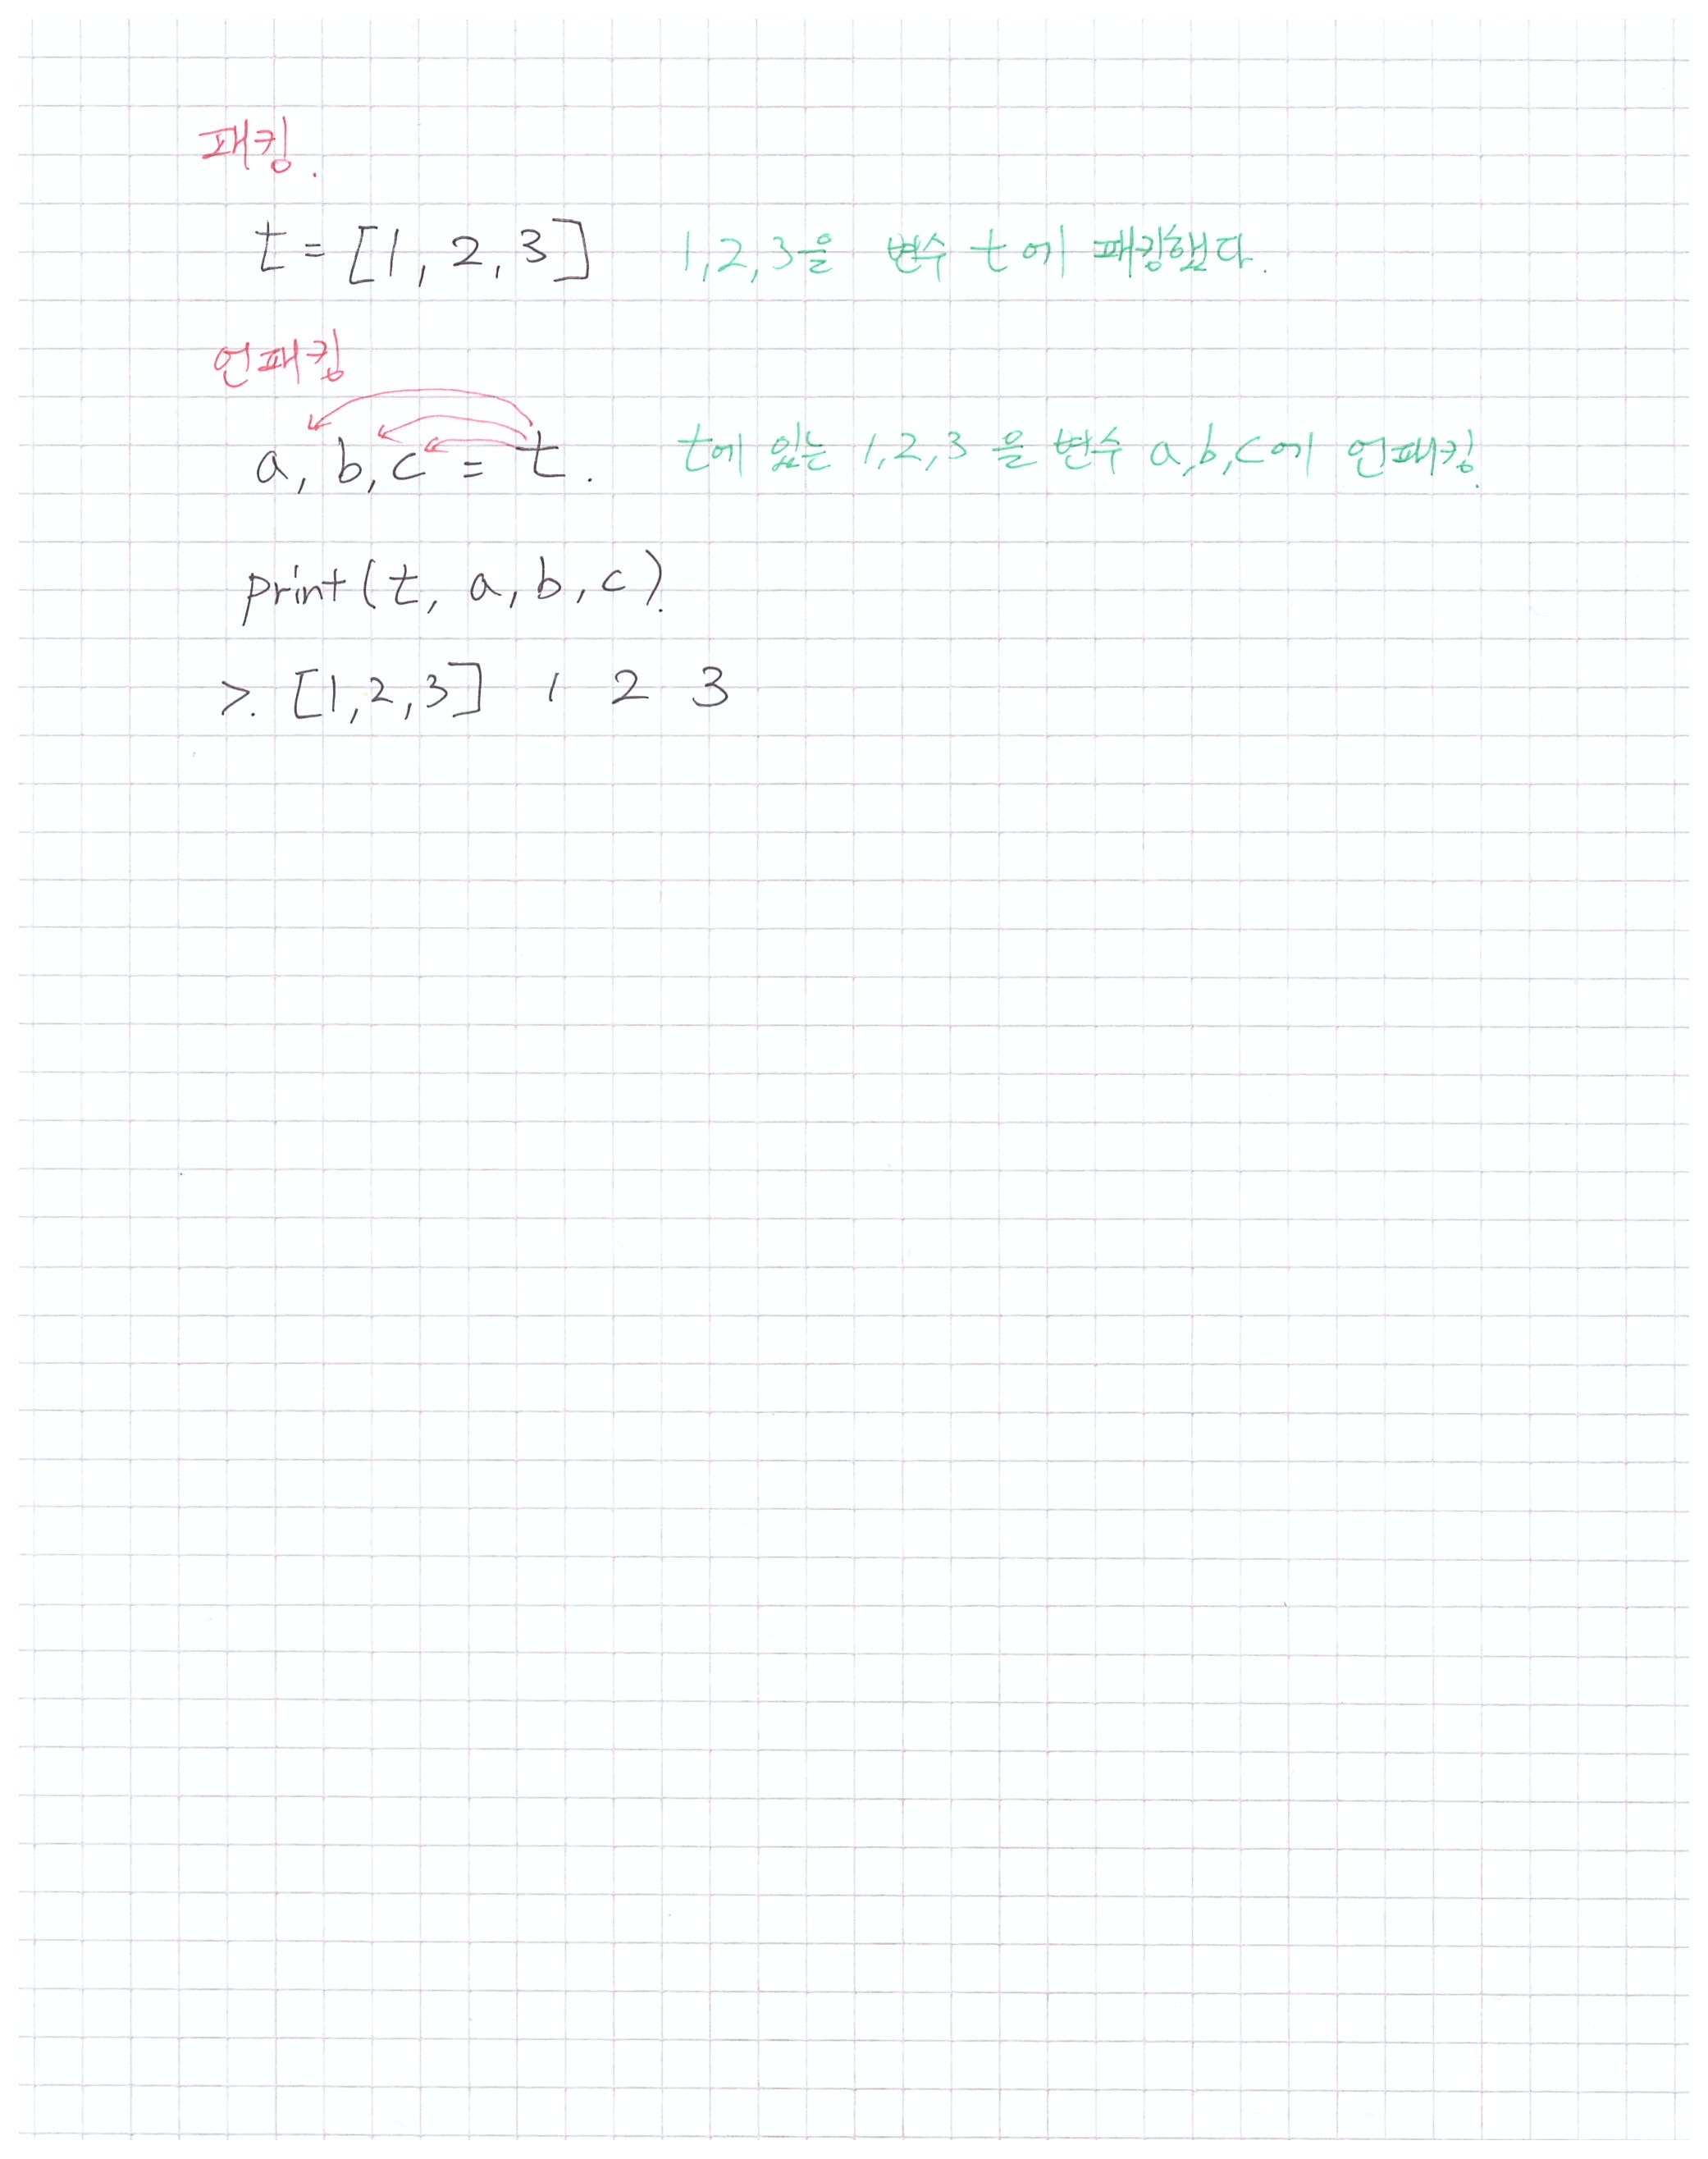 패킹.
t = [1, 2, 3] 1,2,3을 변수 t에 패킹했다.
언패킹
a, b, c = t. t에 있는 1,2,3을 변수 a,b,c에 언패킹.
print(t, a, b, c).
>. [1,2,3] 1 2 3